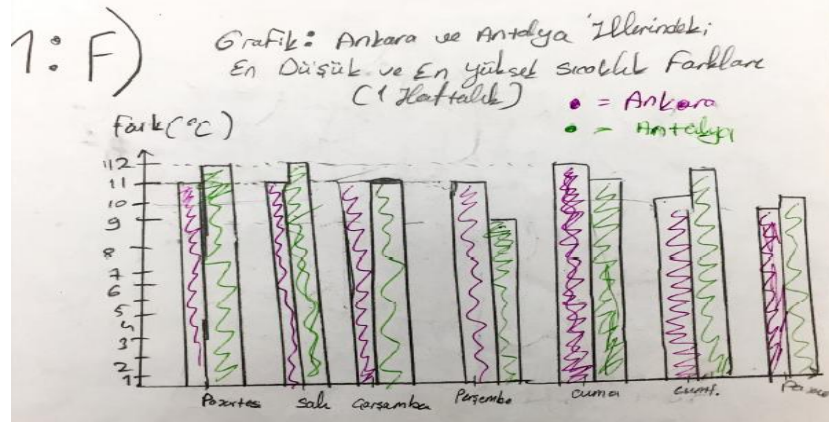 1: F)
Grafik: Ankara ve Antalya İllerindeki
En Düşük ve En Yüksek Sıcaklık Farkları
(1 Haftalık)
• = Ankara
• = Antalya
Fark (°C)
12
11
10
9
8
7
6
5
4
3
2
1
Pazartesi Salı Çarşamba Perşembe Cuma Cumt. Pazar